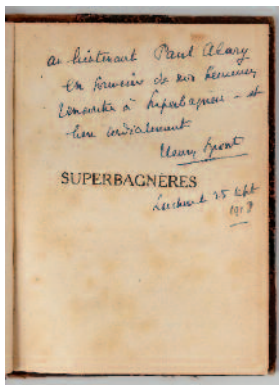 au lieutenant Paul Alary
en souvenir de nos
rencontres à Superbagnères - et
bien cordialement
Henry Spont
SUPERBAGNÈRES
Luchon le 25 Sept